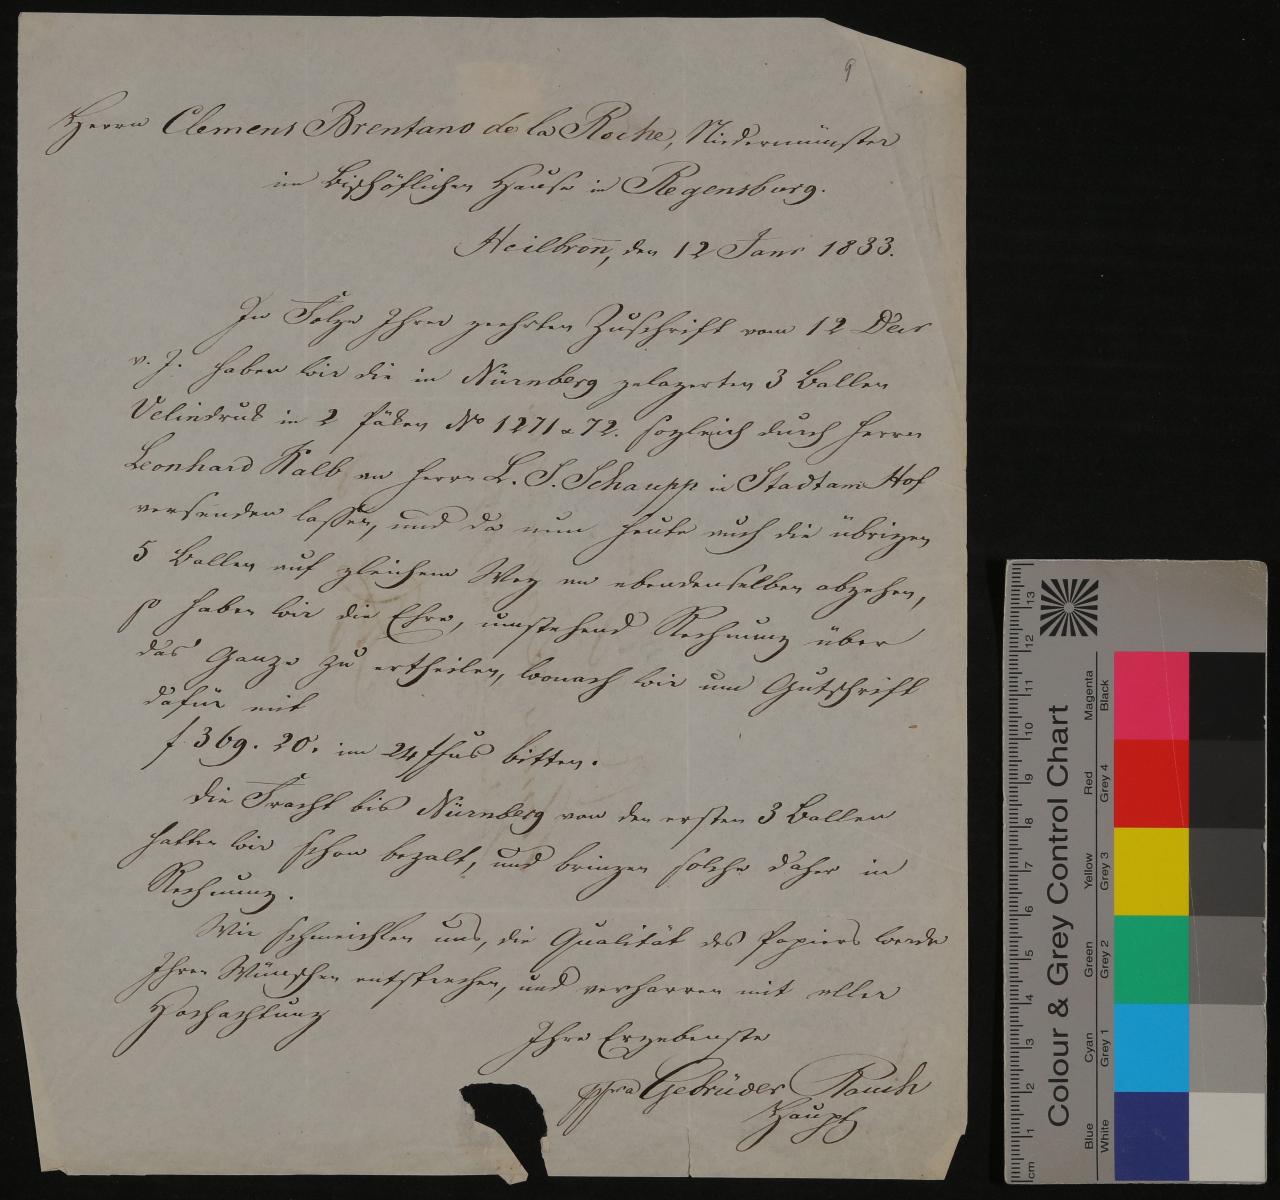 9
Herrn Clemens Brentano de la Roche, Niedermünster
im Bischöflichen Hause in Regensburg.
Heilbron̅, den 12 Janr 1833.
In Folge Ihrer geehrten Zuschrift vom 12 Decr
v. J. haben wir die in Nürnberg gelagerten 3 Ballen
Velindruk in 2 Päken No 1271 & 72. sogleich durch Herrn
Leonhard Kalb an Herrn L. J. Schaupp in Stadtam Hof
versenden lassen, und da nun heute auch die übrigen
5 Ballen auf gleichem Weg an ebendenselben abgehen,
so haben wir die Ehre, umstehend Rechnung über
das Ganze zu ertheilen, wonach wir um Gutschrift
dafür mit
f 369. 20. im 24 ffus bitten.
Die Fracht bis Nürnberg von den ersten 3 Ballen
hatten wir schon bezalt, und bringen solche daher in
Rechnung.
Wir schmeichlen uns, die Qualität des Papiers werde
Ihren Wünschen entsprechen, und verharren mit aller
Hochachtung
Ihre Ergebenste
ppra Gebrüder Rauch
Haupt
Colour & Grey Control Chart
Blue Cyan Green Yellow Red Magenta
White Grey 1 Grey 2 Grey 3 Grey 4 Black
cm 1 2 3 4 5 6 7 8 9 10 11 12 13